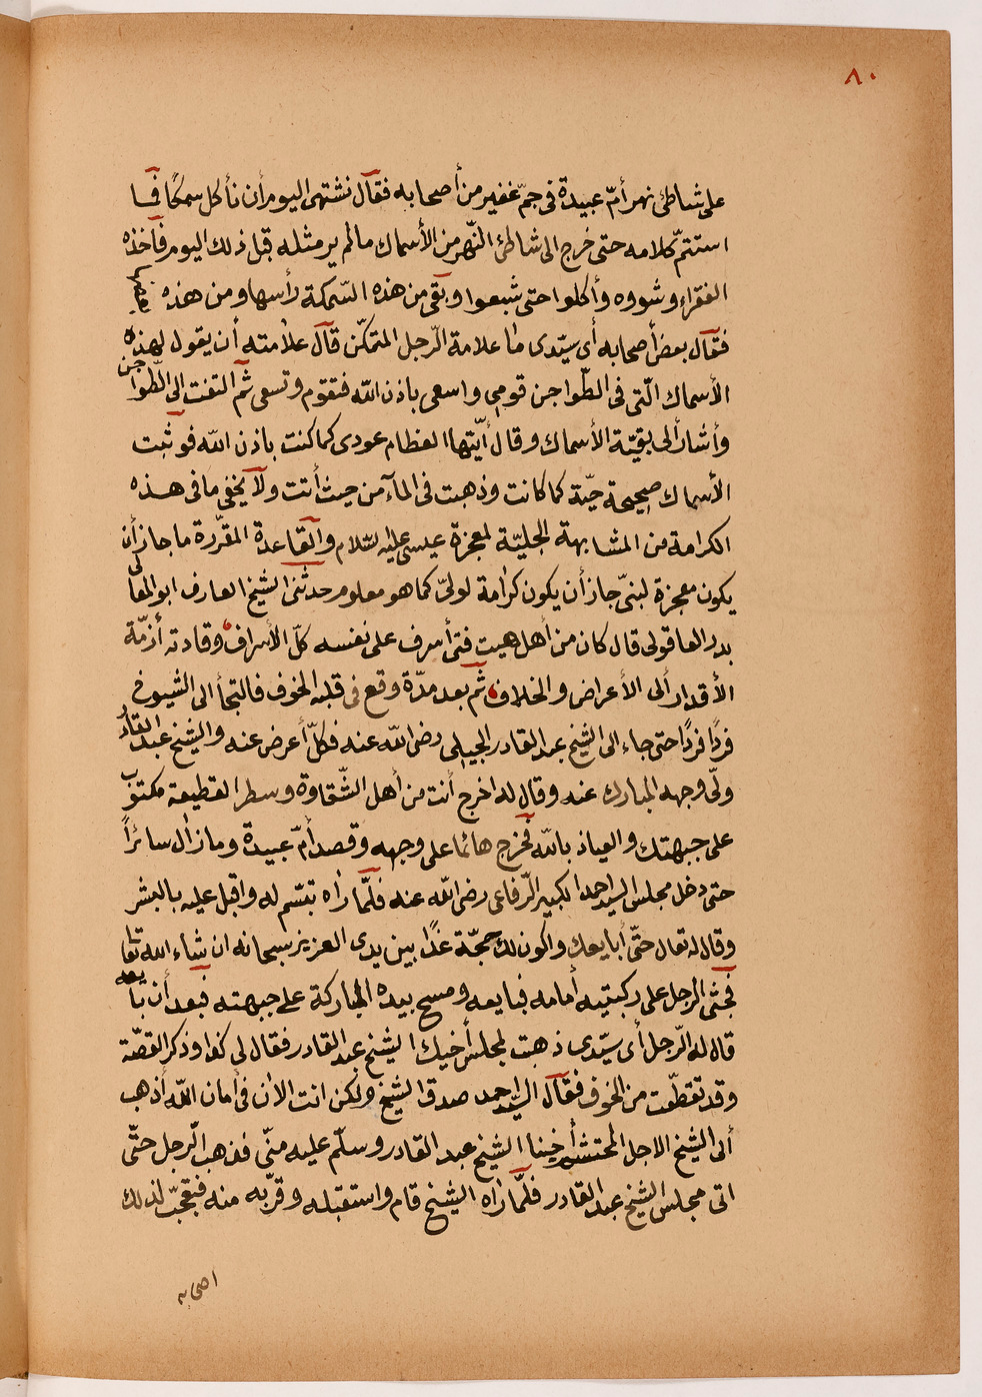 ٨٠
على شاطئ نهر أمّ عبيدة فى جمّ غفير من أصحابه فقال نشتهى اليوم أن نأكل سمكًا فما
استتمّ كلامه حتى خرج الى شاطئ النّهر من الأسماك مالم ير مثله قبل ذلك اليوم فأخذه
الفقراء وشووه وأكلوا حتى شبعوا وبقى من هذه السّمكة رأسها ومن هذه
فقال بعض أصحابه أى سيّدى ما علامة الرّجل المتمكّن قال علامته أن يقول لهذه
الأسماك الّتى فى الطّواجن قومى واسعى باذن اللّه فتقوم وتسعى ثمّ التفت الى الطّواجن
وأشار ألى بقيّة الأسماك وقال أيّتها العظام عودى كما كنت باذن اللّه فوثبت
الأسماك صحيحة حيّة كما كانت وذهبت فى المآء من حيث أتت ولا يخفى ما فى هذه
الكرامة من المشابهة الجليّة لمعجزة عيسى عليه السّلام والقاعدة المقرّرة ما جاز أن
يكون معجزة لنبىّ جاز أن يكون كرامة لولىّ كما هو معلوم حدثنى الشيخ العارف ابو المعالى
بدر العاقولى قال كان من أهل هيت فتى أسرف على نفسه كلّ الأسراف وقادته أزمّة
الأقدار ألى الأعراض والخلاف ثم بعد مدّة وقع فى قلبه الخوف فالتجأ الى الشيوخ
فردًا فردًا حتى جاء الى الشيخ عبد القادر الجيلى رضى اللّه عنه فكلّ أعرض عنه والشيخ عبد القادر
ولّى وجهه المبارك عنه وقال له اخرج أنت من أهل الشّقاوة وسطر القطيعة مكتوب
على جبهتك والعياذ باللّه فخرج هائما على وجهه وقصد أمّ عبيدة وما زال سائراً
حتى دخل مجلس السيد احمد الكبير الرّفاعى رضى اللّه عنه فلمّا رأه تبسّم له واقبل عليه بالبشر
وقال له تعال حتّى أبايعك واكون لك حجّة غدًا بين يدى العزيز سبحانه ان شاء الله تعا
فجثى الرجل على ركبتيه أمامه فبايعه ومسح بيده المباركة على جبهته فبعد أن بايعه
قال له الرّجل أى سيّدى ذهبت لمجلس أخيك الشيخ عبد القادر فقال لى كذا وذكر القصّة
وقد تقطّعت من الخوف فقال السيّد احمد صدق الشيخ ولكن انت الأن فى أمان اللّه أذهب
ألى الشيخ الاجل المحتشم أخينا الشيخ عبد القادر وسلّم عليه منّى فذهب الّرجل حتّى
اتى مجلس الشيخ عبد القادر فلمّا رأه الشيخ قام واستقبله وقرّبه منه فتعجّب لذلك
اصحابه